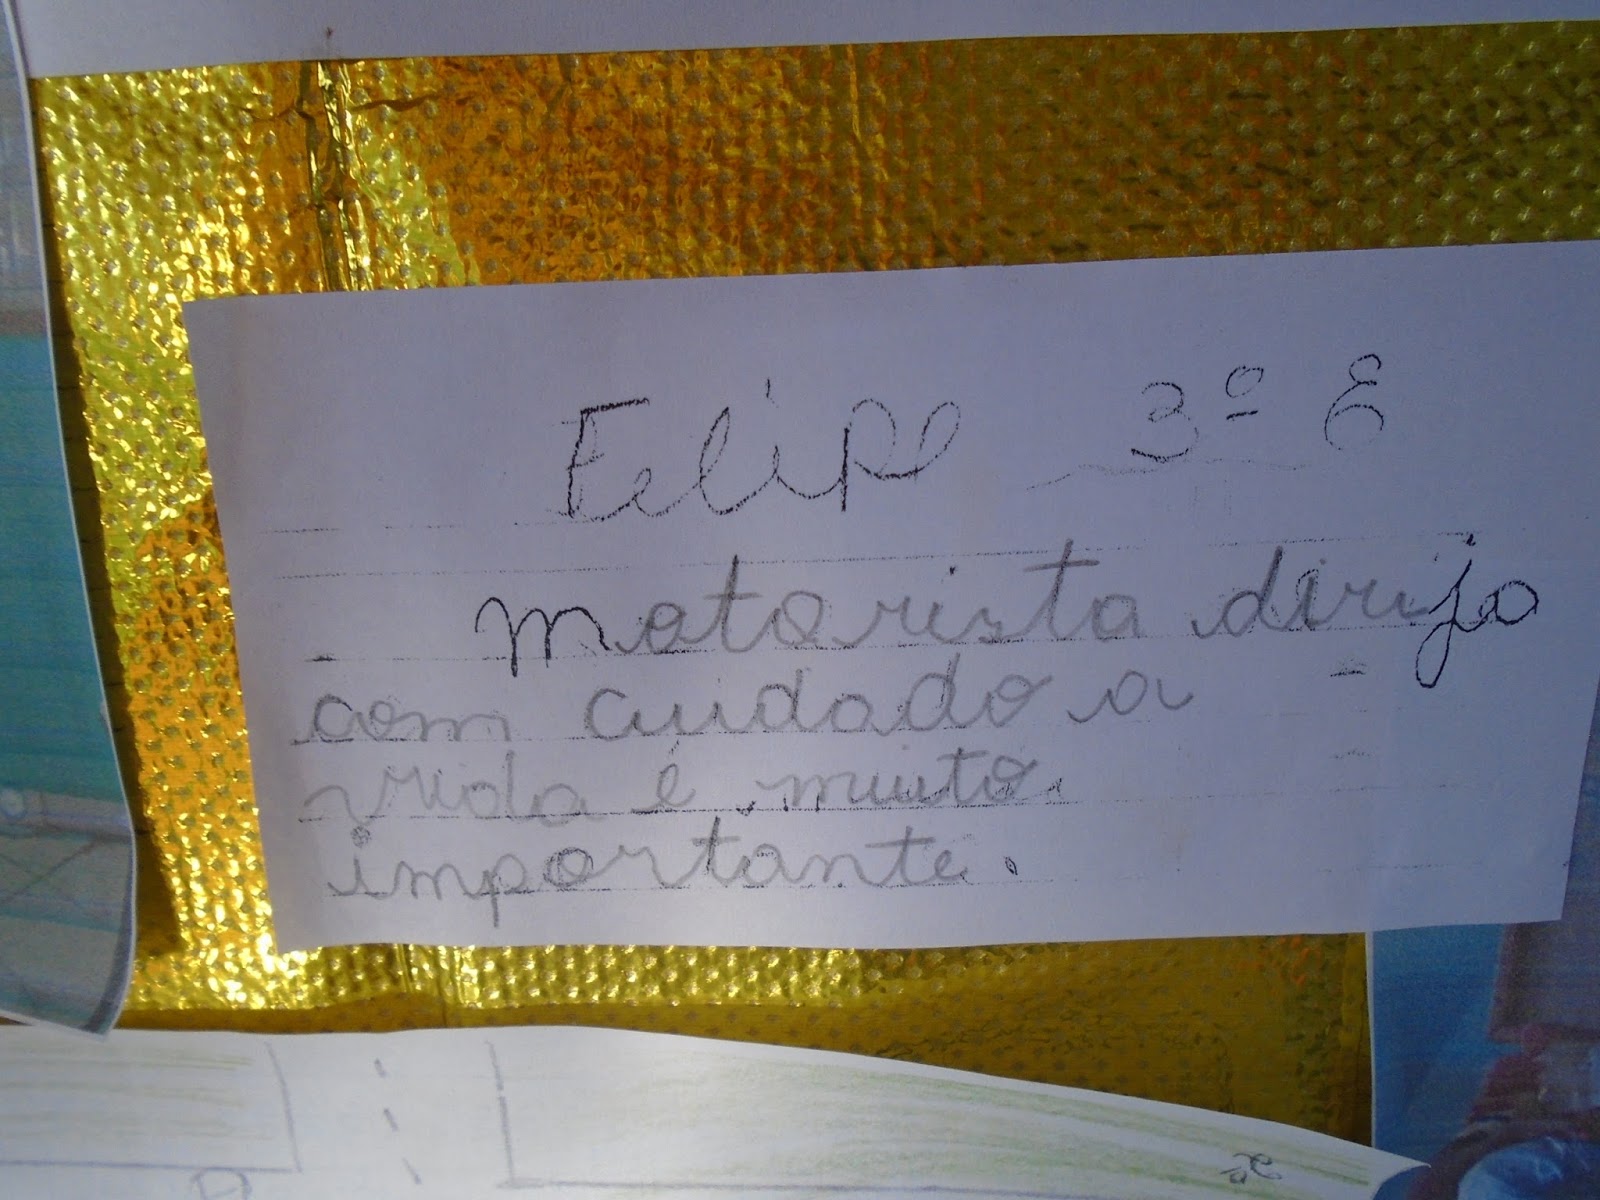 Felipe 3º E
Motorista dirija
com cuidado a
vida é muito
importante.